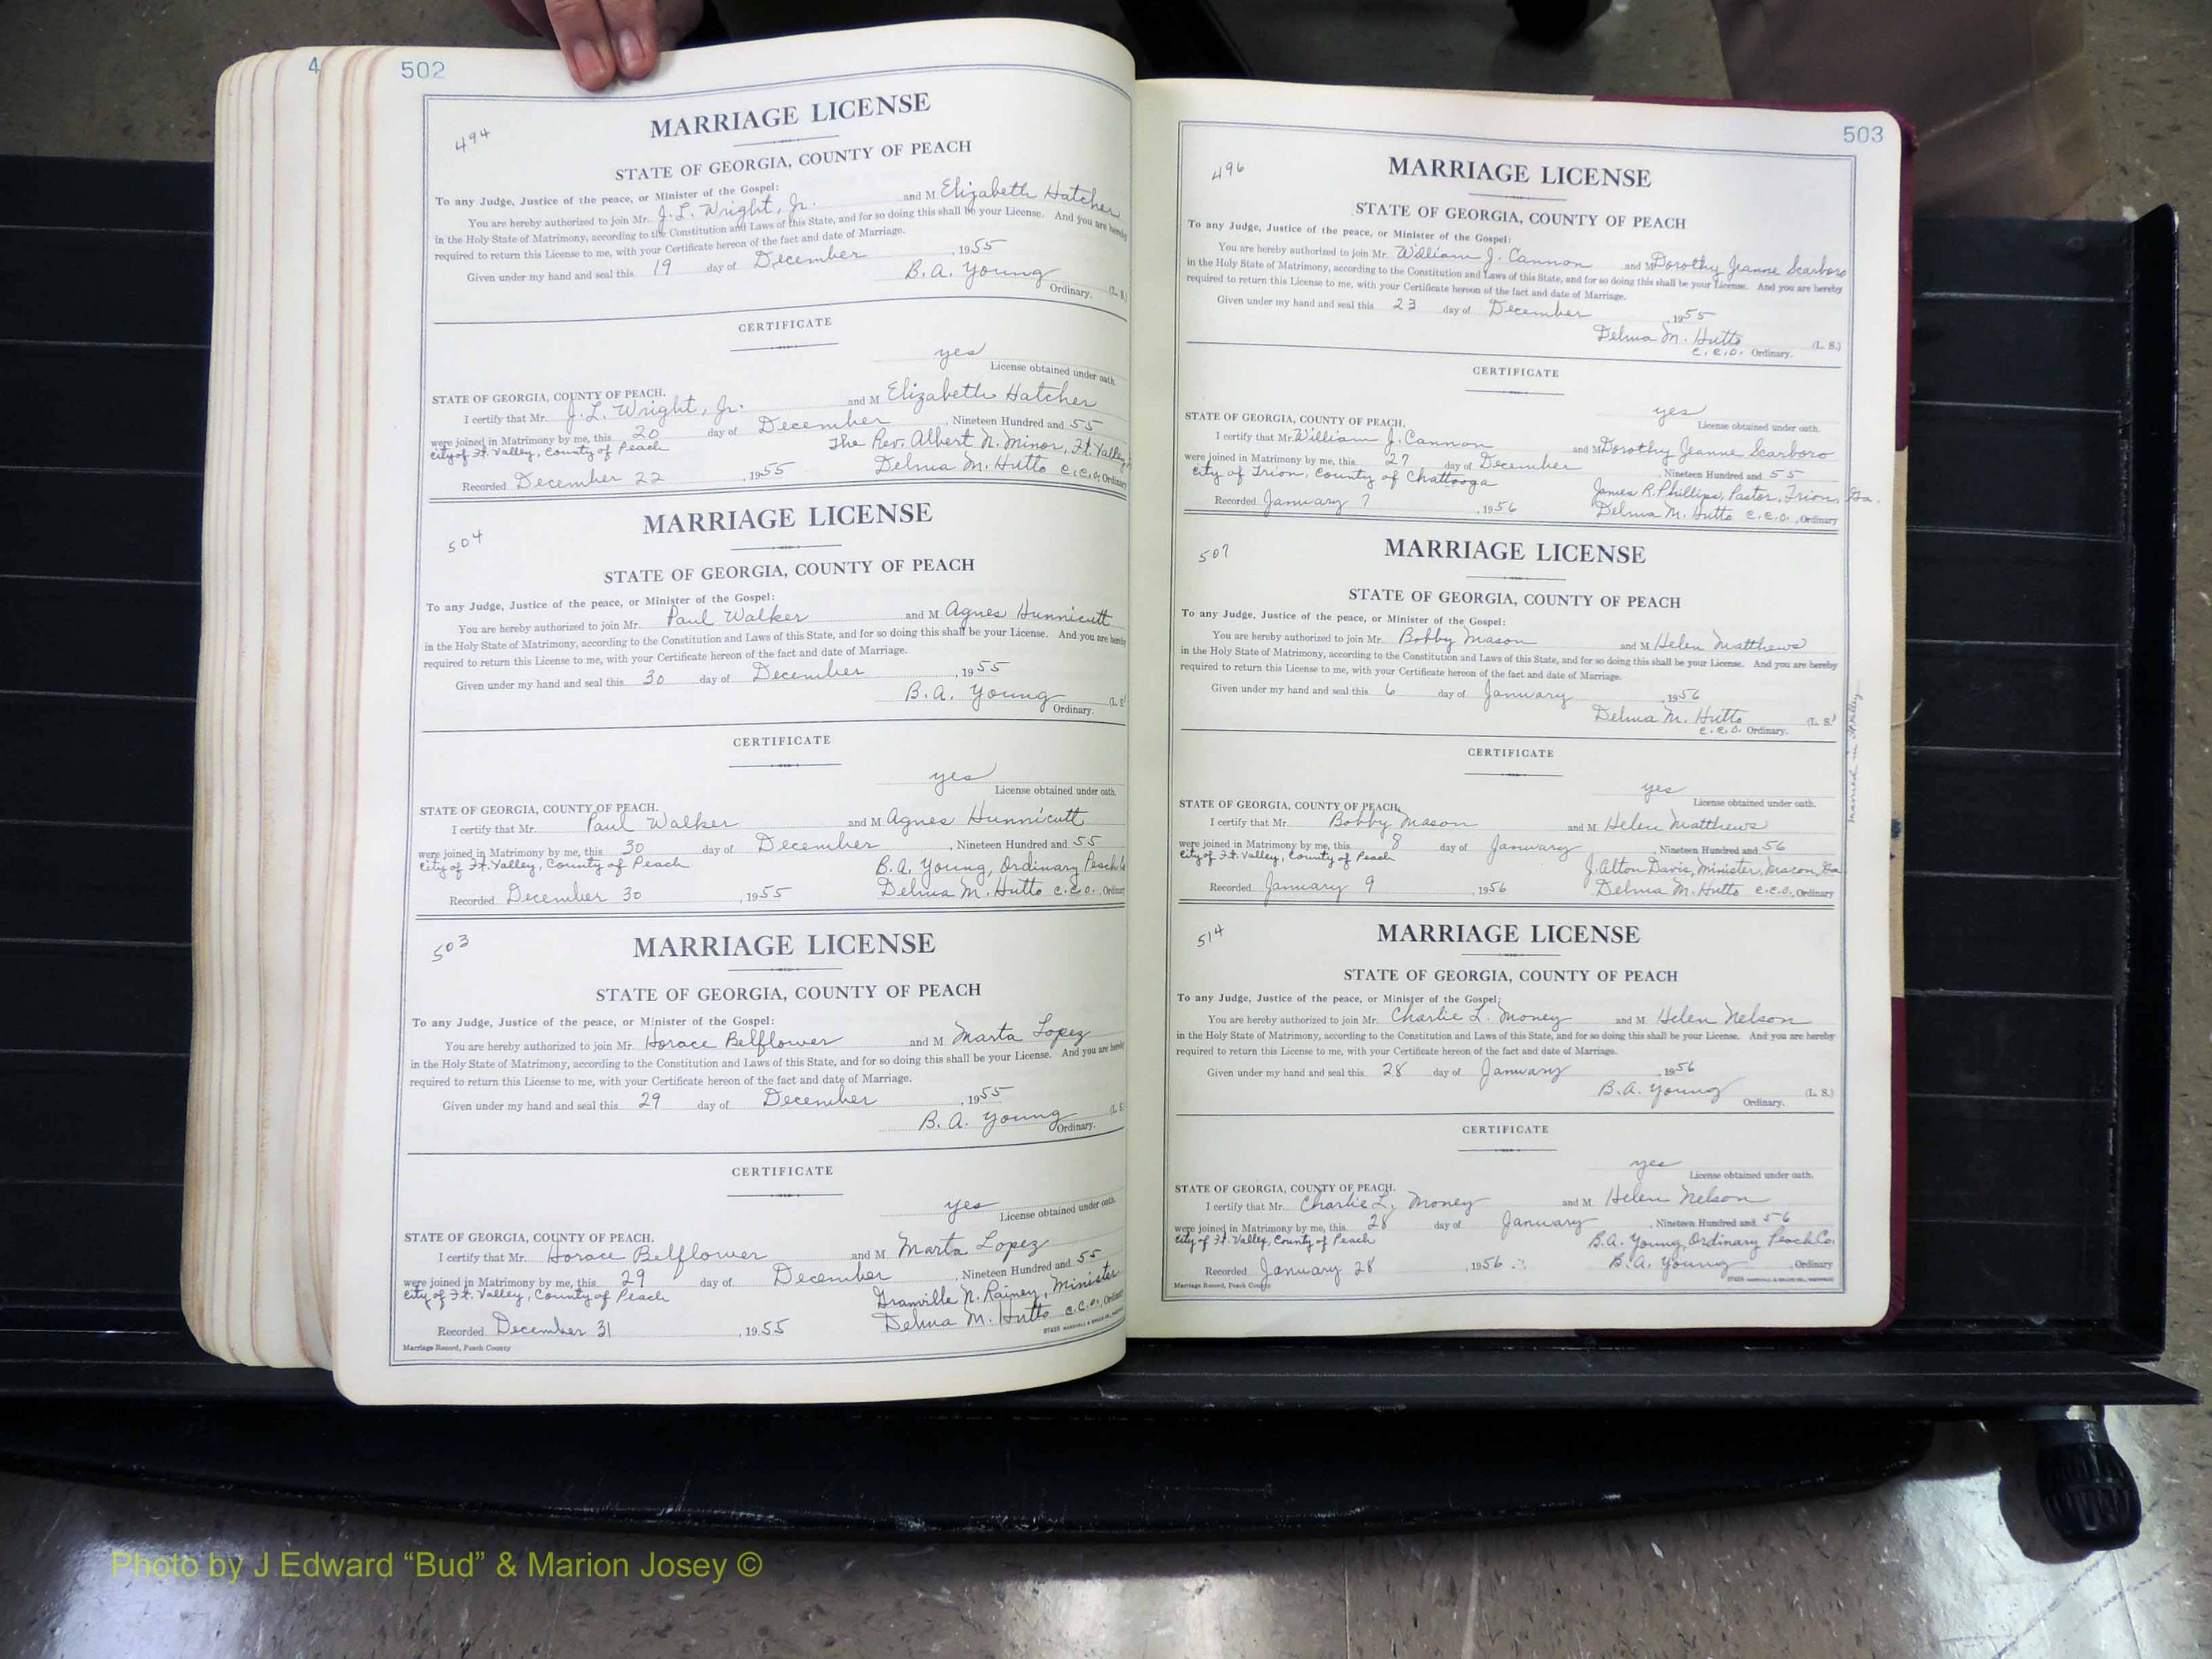 4
502
494
MARRIAGE LICENSE
STATE OF GEORGIA, COUNTY OF PEACH
To any Judge, Justice of the peace, or Minister of the Gospel:
You are hereby authorized to join Mr. J. L. Wright, Jr. and M Elizabeth Hatcher
in the Holy State of Matrimony, according to the Constitution and Laws of this State, and for so doing this shall be your License. And you are hereby
required to return this License to me, with your Certificate hereon of the fact and date of Marriage.
Given under my hand and seal this 19 day of December, 1955
B. A. Young (L. S.)
Ordinary.
CERTIFICATE
yes
License obtained under oath.
STATE OF GEORGIA, COUNTY OF PEACH.
I certify that Mr. J. L. Wright, Jr. and M Elizabeth Hatcher
were joined in Matrimony by me, this 20 day of December, Nineteen Hundred and 55
city of Ft. Valley, County of Peach The Rev. Albert N. Minor, Ft. Valley
Recorded December 22, 1955 Delma M. Hutto c.c.o., Ordinary
504
MARRIAGE LICENSE
STATE OF GEORGIA, COUNTY OF PEACH
To any Judge, Justice of the peace, or Minister of the Gospel:
You are hereby authorized to join Mr. Paul Walker and M Agnes Hunnicutt
in the Holy State of Matrimony, according to the Constitution and Laws of this State, and for so doing this shall be your License. And you are hereby
required to return this License to me, with your Certificate hereon of the fact and date of Marriage.
Given under my hand and seal this 30 day of December, 1955
B. A. Young (L. S.
Ordinary.
CERTIFICATE
yes
License obtained under oath.
STATE OF GEORGIA, COUNTY OF PEACH.
I certify that Mr. Paul Walker and M Agnes Hunnicutt
were joined in Matrimony by me, this 30 day of December, Nineteen Hundred and 55
city of Ft. Valley, County of Peach B. A. Young, Ordinary Peach
Recorded December 30, 1955 Delma M. Hutto c.c.o., Ordinary
503
MARRIAGE LICENSE
STATE OF GEORGIA, COUNTY OF PEACH
To any Judge, Justice of the peace, or Minister of the Gospel:
You are hereby authorized to join Mr. Horace Belflower and M Marta Lopez
in the Holy State of Matrimony, according to the Constitution and Laws of this State, and for so doing this shall be your License. And you are hereby
required to return this License to me, with your Certificate hereon of the fact and date of Marriage.
Given under my hand and seal this 29 day of December, 1955
B. A. Young (L. S.
Ordinary.
CERTIFICATE
yes
License obtained under oath.
STATE OF GEORGIA, COUNTY OF PEACH.
I certify that Mr. Horace Belflower and M Marta Lopez
were joined in Matrimony by me, this 29 day of December, Nineteen Hundred and 55
city of Ft. Valley, County of Peach Granville N. Rainey, Minister
Recorded December 31, 1955 Delma M. Hutto c.c.o., Ordinary
Marriage Record, Peach County
503
496
MARRIAGE LICENSE
STATE OF GEORGIA, COUNTY OF PEACH
To any Judge, Justice of the peace, or Minister of the Gospel:
You are hereby authorized to join Mr. William J. Cannon and M Dorothy Jeanne Scarboro
in the Holy State of Matrimony, according to the Constitution and Laws of this State, and for so doing this shall be your License. And you are hereby
required to return this License to me, with your Certificate hereon of the fact and date of Marriage.
Given under my hand and seal this 23 day of December, 1955
Delma M. Hutto (L. S.)
c.c.o. Ordinary.
CERTIFICATE
yes
License obtained under oath.
STATE OF GEORGIA, COUNTY OF PEACH.
I certify that Mr. William J. Cannon and M Dorothy Jeanne Scarboro
were joined in Matrimony by me, this 27 day of December, Nineteen Hundred and 55
city of Trion, County of Chattooga James R. Phillips, Pastor, Trion, Ga.
Recorded January 7, 1956 Delma M. Hutto c.c.o., Ordinary
507
MARRIAGE LICENSE
STATE OF GEORGIA, COUNTY OF PEACH
To any Judge, Justice of the peace, or Minister of the Gospel:
You are hereby authorized to join Mr. Bobby Mason and M Helen Matthews
in the Holy State of Matrimony, according to the Constitution and Laws of this State, and for so doing this shall be your License. And you are hereby
required to return this License to me, with your Certificate hereon of the fact and date of Marriage.
Given under my hand and seal this 6 day of January, 1956
Delma M. Hutto (L. S.)
c.c.o. Ordinary.
CERTIFICATE
yes
License obtained under oath.
STATE OF GEORGIA, COUNTY OF PEACH.
I certify that Mr. Bobby Mason and M Helen Matthews
were joined in Matrimony by me, this 8 day of January, Nineteen Hundred and 56
city of Ft. Valley, County of Peach J. Alton Davis, Minister, Macon, Ga
Recorded January 9, 1956 Delma M. Hutto c.c.o., Ordinary
married in Ft Valley
514
MARRIAGE LICENSE
STATE OF GEORGIA, COUNTY OF PEACH
To any Judge, Justice of the peace, or Minister of the Gospel:
You are hereby authorized to join Mr. Charlie L. Money and M Helen Nelson
in the Holy State of Matrimony, according to the Constitution and Laws of this State, and for so doing this shall be your License. And you are hereby
required to return this License to me, with your Certificate hereon of the fact and date of Marriage.
Given under my hand and seal this 28 day of January, 1956
B. A. Young (L. S.)
Ordinary.
CERTIFICATE
yes
License obtained under oath.
STATE OF GEORGIA, COUNTY OF PEACH.
I certify that Mr. Charlie L. Money and M Helen Nelson
were joined in Matrimony by me, this 28 day of January, Nineteen Hundred and 56
city of Ft. Valley, County of Peach B. A. Young, Ordinary Peach Co.
Recorded January 28, 1956 B. A. Young, Ordinary
Marriage Record, Peach County
Photo by J Edward “Bud” & Marion Josey ©